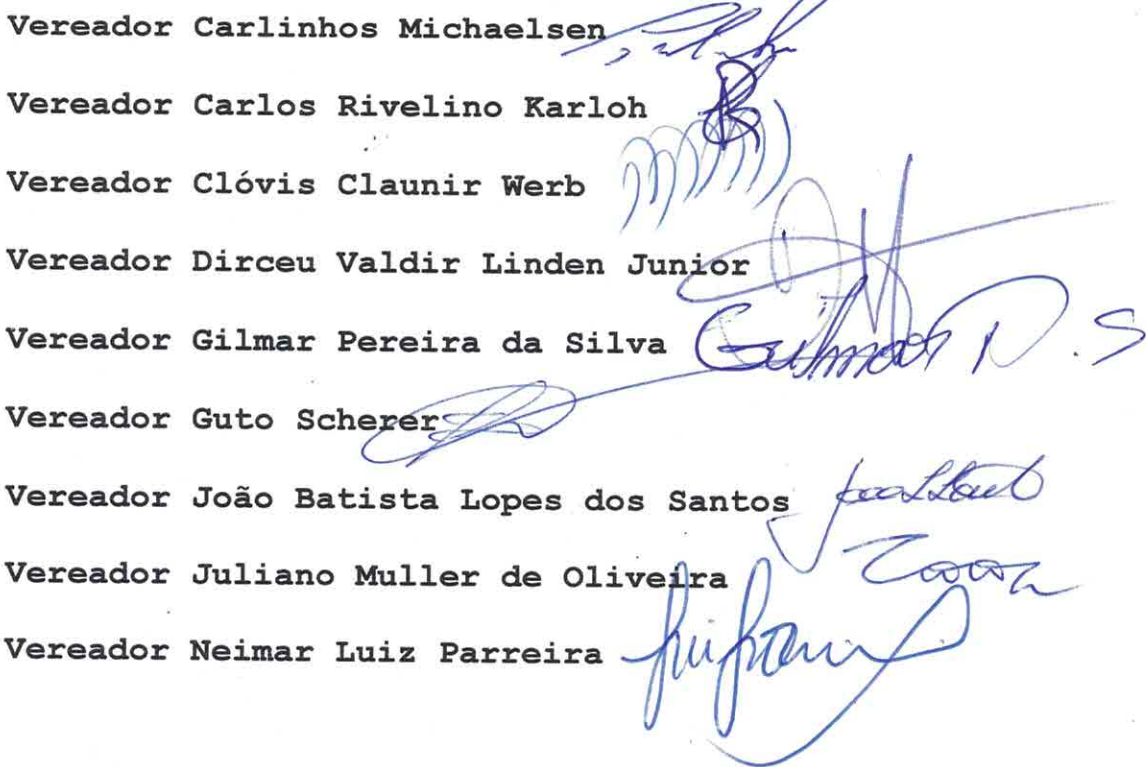 Vereador Carlinhos Michaelsen
Vereador Carlos Rivelino Karloh
Vereador Clóvis Claunir Werb
Vereador Dirceu Valdir Linden Junior
Vereador Gilmar Pereira da Silva
Vereador Guto Scherer
Vereador João Batista Lopes dos Santos
Vereador Juliano Muller de Oliveira
Vereador Neimar Luiz Parreira